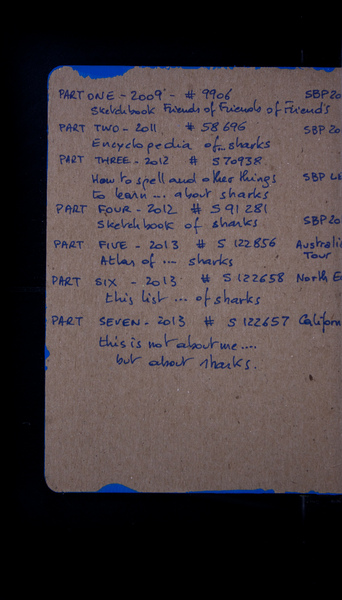 PART ONE - 2009 - # 9906 SBP 20
Sketchbook Friends of Friends of Friends
PART TWO - 2011 # 58696 SBP 20
Encyclopedia of... sharks
PART THREE - 2012 # S70938
How to spell and other things SBP
to learn ... about sharks
PART FOUR - 2012 # S 91 281 SBP 20
Sketchbook of sharks
PART FIVE - 2013 # S 122856 Australi
Atlas of .... sharks Tour
PART SIX - 2013 # S 122658 North E
this list ... of sharks
PART SEVEN - 2013 # S 122657 Californ
this is not about me....
but about sharks.